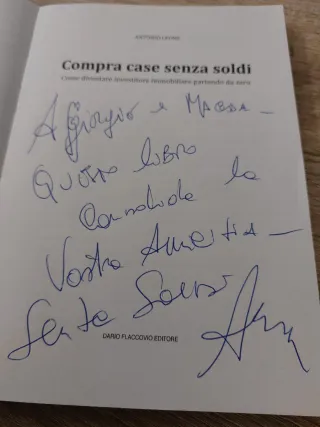 ANTONIO LEONE
Compra case senza soldi
Come diventare investitore immobiliare partendo da zero
A Giorgio e MAGDA -
QUESTO LIBRO
la
Vostra Amicizia -
Senza Soldi
DARIO FLACCOVIO EDITORE